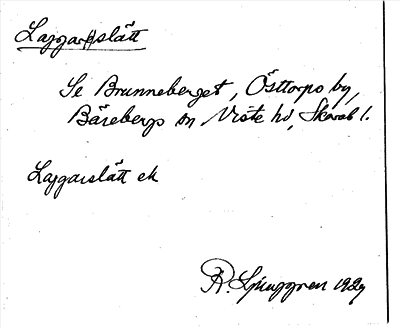 Laggarslätt
Se Brunneberget, Östtorps by,
Bärebergs sn Viste hd, Skarab l.
Laggarslätt ek
R. Ljunggren 1929